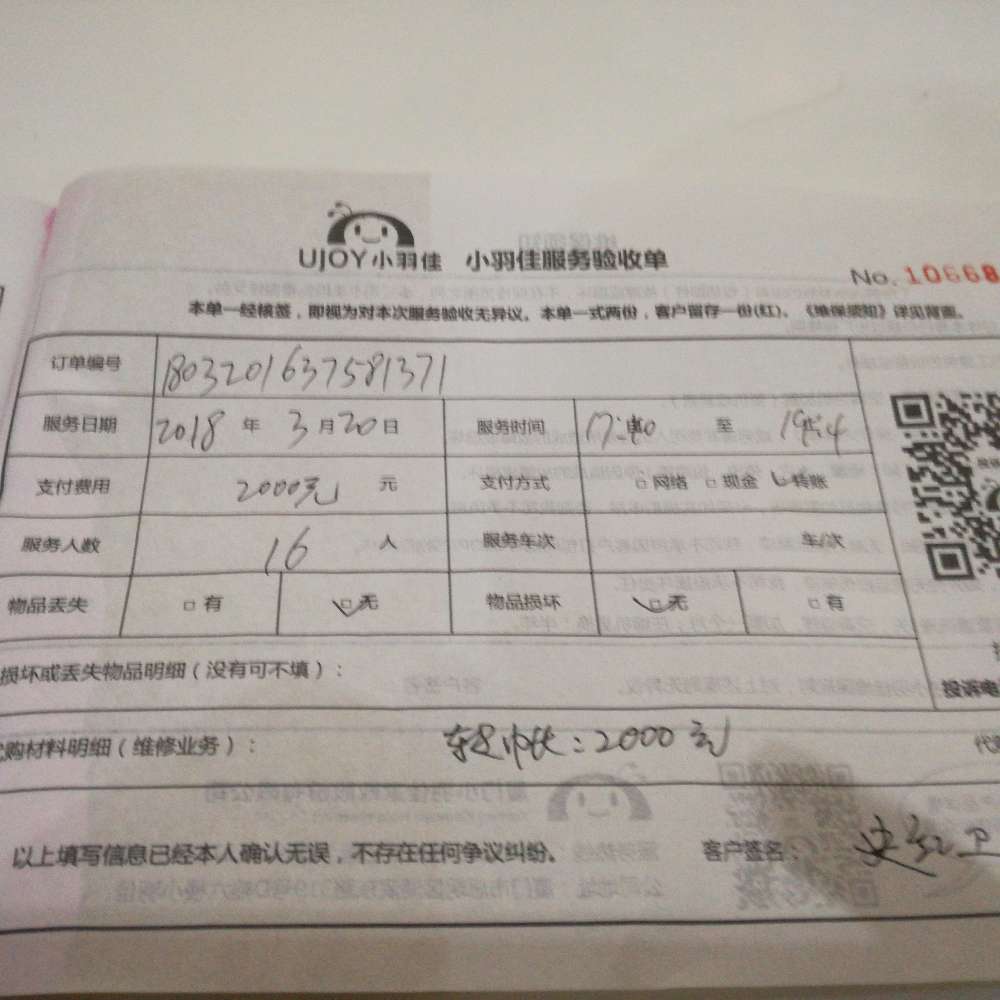 UJOY小羽佳 小羽佳服务验收单
No. 10668
本单一经核签，即视为对本次服务验收无异议。本单一式两份，客户留存一份(红)。《维保须知》详见背面。
订单编号 180320163758​1371
服务日期 2018 年 3 月 20 日 服务时间 至
支付费用 2000元 元 支付方式 □ 网络 □ 现金 转账
服务人数 16 人 服务车次 车/次
物品丢失 □ 有 □ 无 物品损坏 □ 无 □ 有
损坏或丢失物品明细（没有可不填）：
投诉电
购材料明细（维修业务）： 2000元
以上填写信息已经本人确认无误，不存在任何争议纠纷。 客户签名： 史红卫